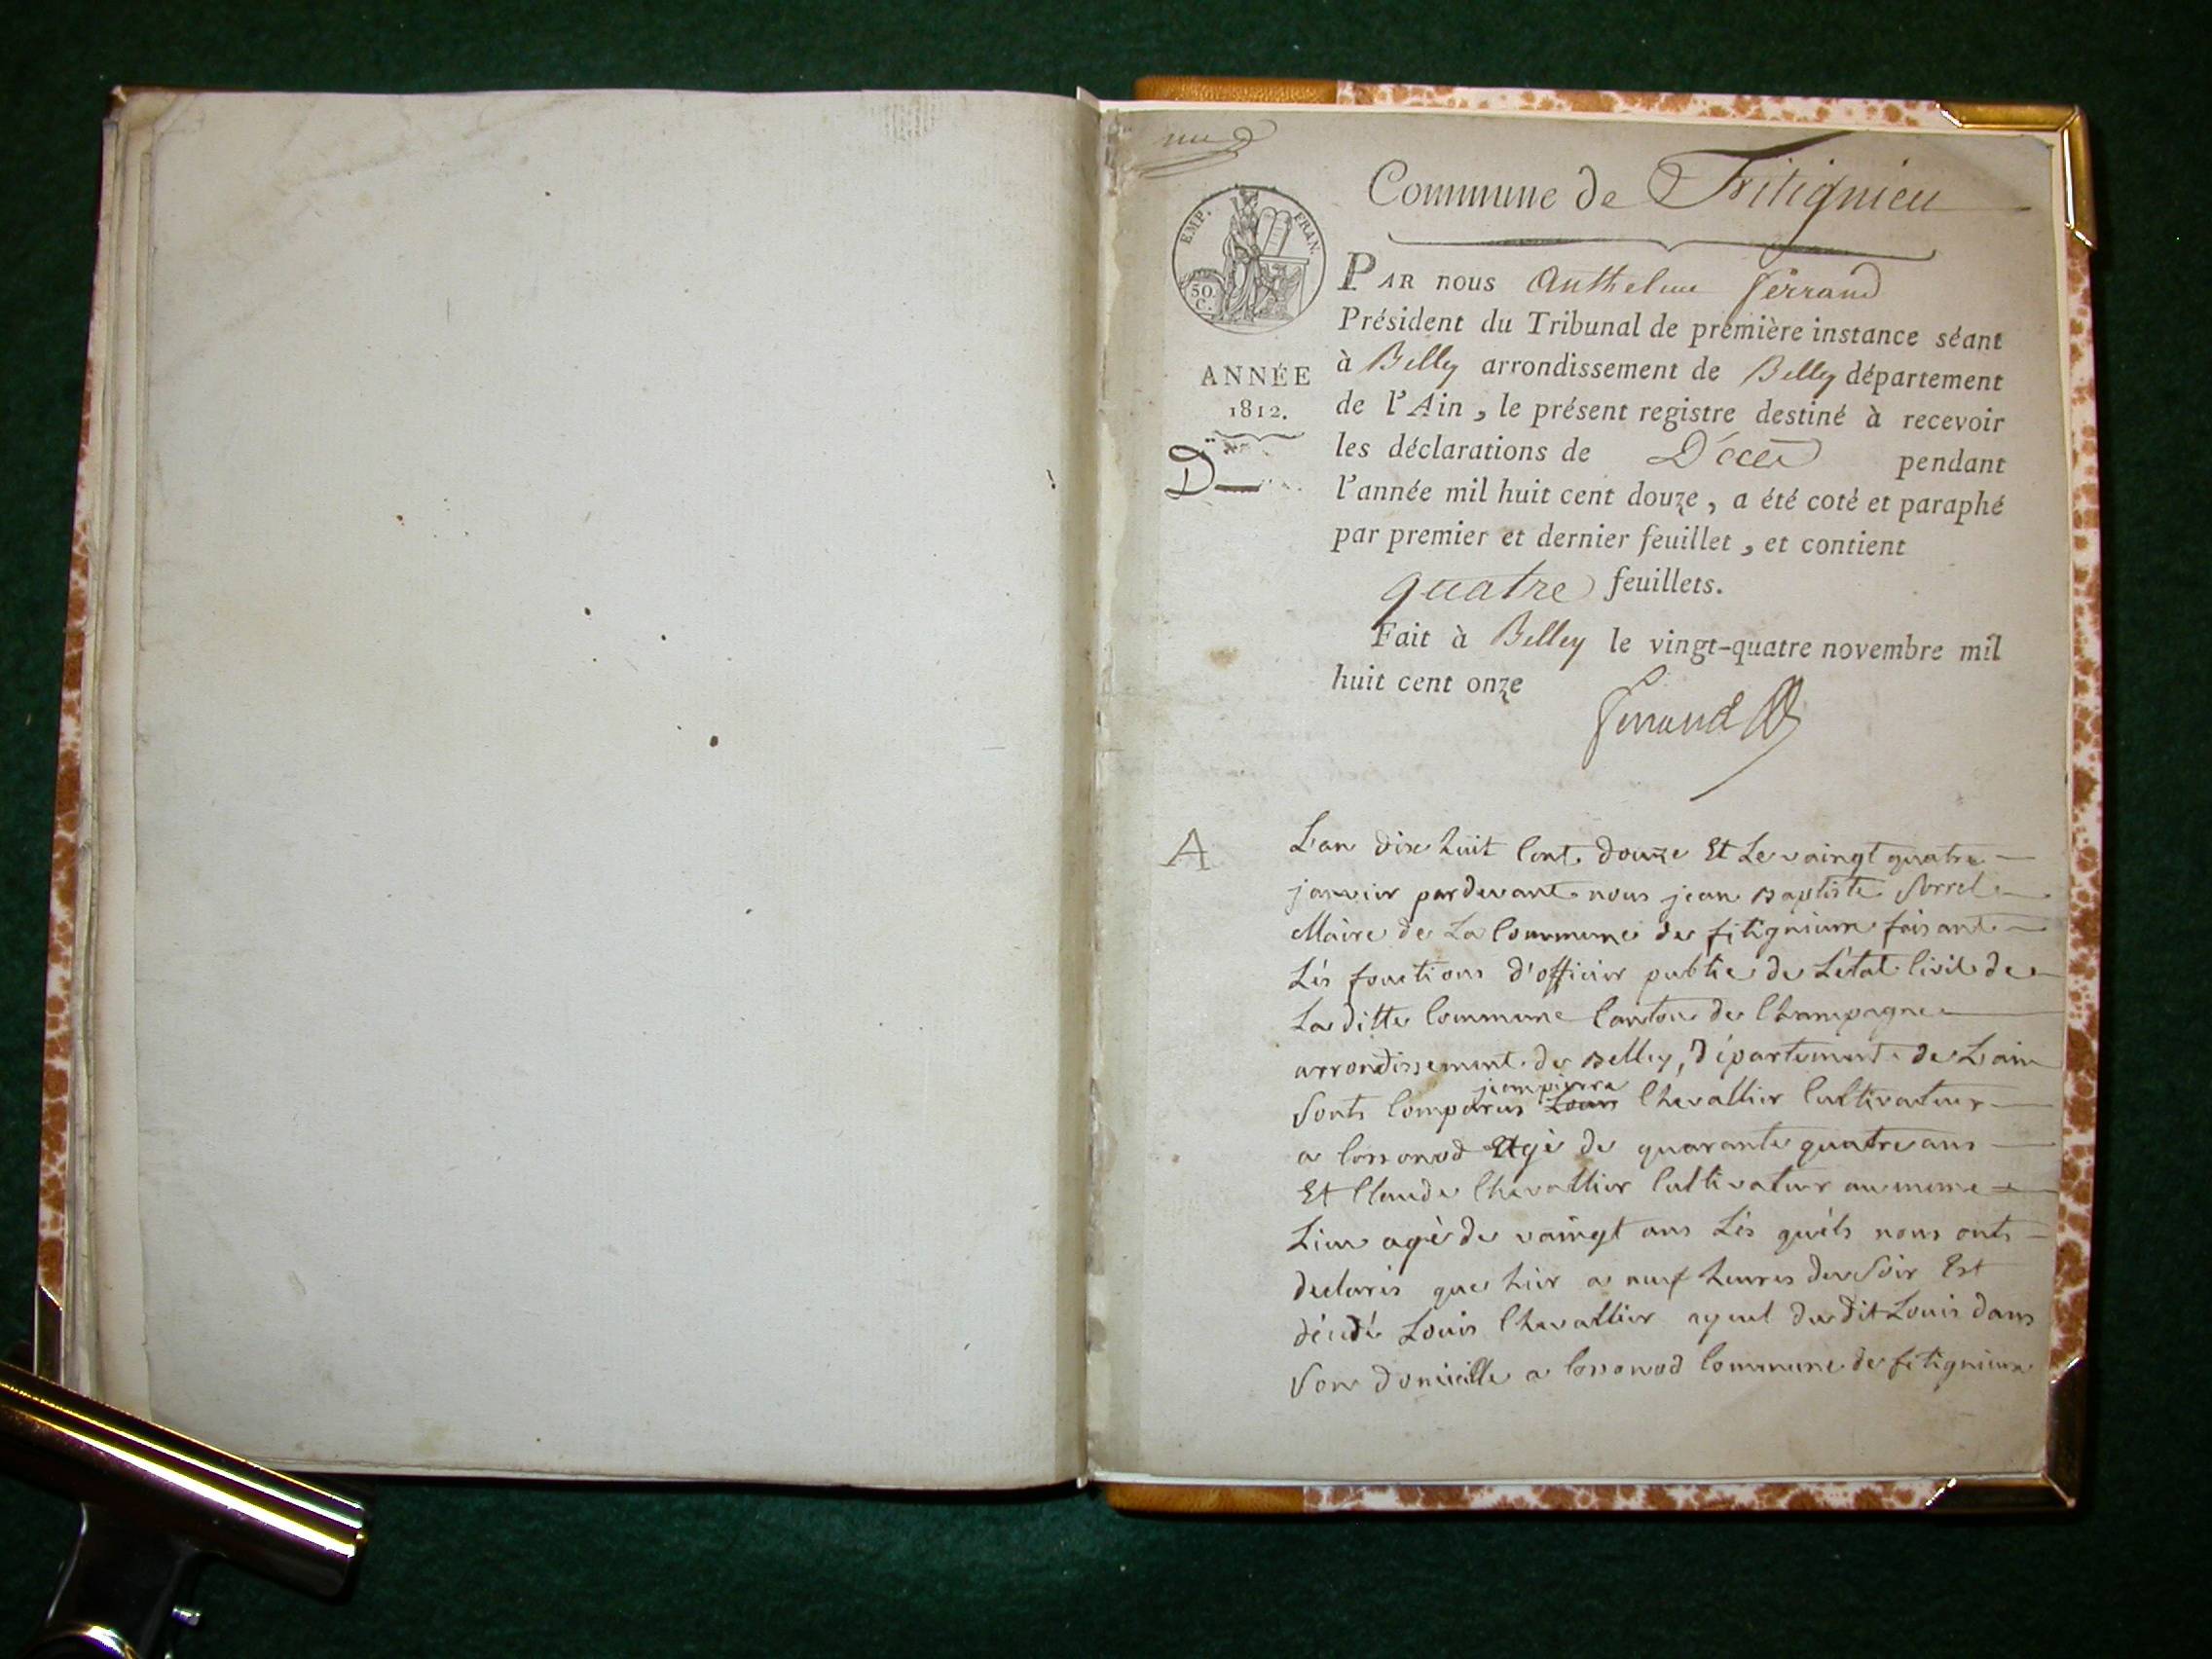 Commune de Fitignieu
EMP. FRAN.
50. C.
ANNÉE
1812.
D
PAR nous Anthelme Ferrand
Président du Tribunal de première instance séant
à Belley arrondissement de Belley département
de l'Ain, le présent registre destiné à recevoir
les déclarations de Décès pendant
l'année mil huit cent douze, a été coté et paraphé
par premier et dernier feuillet, et contient
quatre feuillets.
Fait à Belley le vingt-quatre novembre mil
huit cent onze
Ferrand
A
L'an dix huit Cent douze Et Le vaingt quatre
janvier pardevant nous jean Baptiste Sorrel
Maire de La Commune de fitignieux faisant
Lés fonctions d'officier public de L'état Civil de
La ditte Commune Canton de Champagne
arrondissement de Belley, département de L'ain
jeanpierre
Sonts Comparus Louis Chevallier Cultivateur
a Cossonod Agé de quarante quatre ans
Et Claude Chevallier Cultivateur au meme
Lieu agé de vaingt ans Lés quéls nous onts
declarés que hier a neuf heures du Soir Est
décédé Louis Chevallier ayeul du dit Louis dans
Son domicille a Cossonod Commune de fitignieux